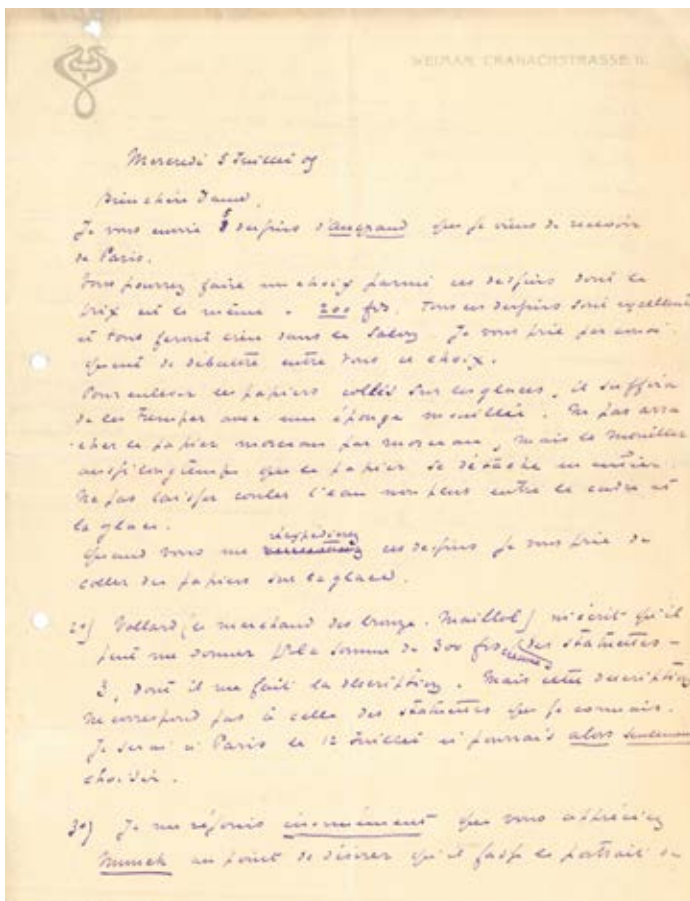 WEIMAR. CRANACHSTRASSE 11.
Mercredi 5 Juillet 05
Bien chère Dame,
Je vous envoie 5 dessins d'Angrand que je viens de recevoir
de Paris.
Vous pourrez faire un choix parmi ces dessins dont le
prix est le même. 200 frs. Tous ces dessins sont excellents
et tous feront bien dans le Salon. Je vous prie par
de débattre entre vous ce choix.
Pour enlever les papiers collés sur les glaces, il suffira
de les tremper avec une éponge mouillée. Ne pas arra
-cher le papier morceau par morceau, mais le mouiller
aussi longtemps que le papier se détache en entier.
Ne pas laisser couler l'eau non plus entre le cadre et
la glace.
Quand vous me réexpédierez ces dessins je vous prie de
coller des papiers sur la glace.
2°) Vollard (le marchand des bronzes Maillol) m'écrit qu'il
peut me donner la somme de 300 frs des statuettes -
3, dont il me fait la description. Mais cette description
ne correspond pas à celle des statuettes que je connais.
Je serai à Paris le 12 Juillet et pourrais alors seulement
choisir.
3°) Je me réjouis énormément que vous appréciez
Munch au point de désirer qu'il fasse le portrait de